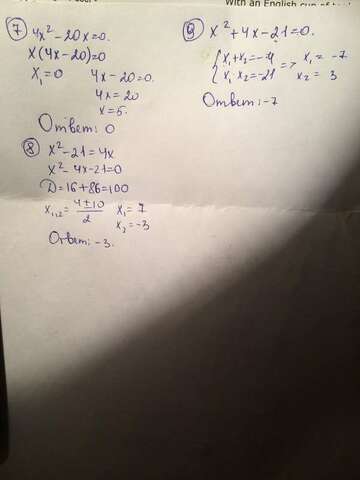 With an English cup of t
⑦ 4x² - 20x = 0.
x(4x - 20) = 0
x₁ = 0 4x - 20 = 0.
4x = 20
x = 5.
Ответ: 0
⑧ x² - 21 = 4x
x² - 4x - 21 = 0
D = 16 + 86 = 100
x₁,₂ = (4 ± 10)/2 x₁ = 7
x₂ = -3
Ответ: -3.
⑨ x² + 4x - 21 = 0.
{ x₁ + x₂ = -4 => x₁ = -7
x₁ x₂ = -21 x₂ = 3
Ответ: -7